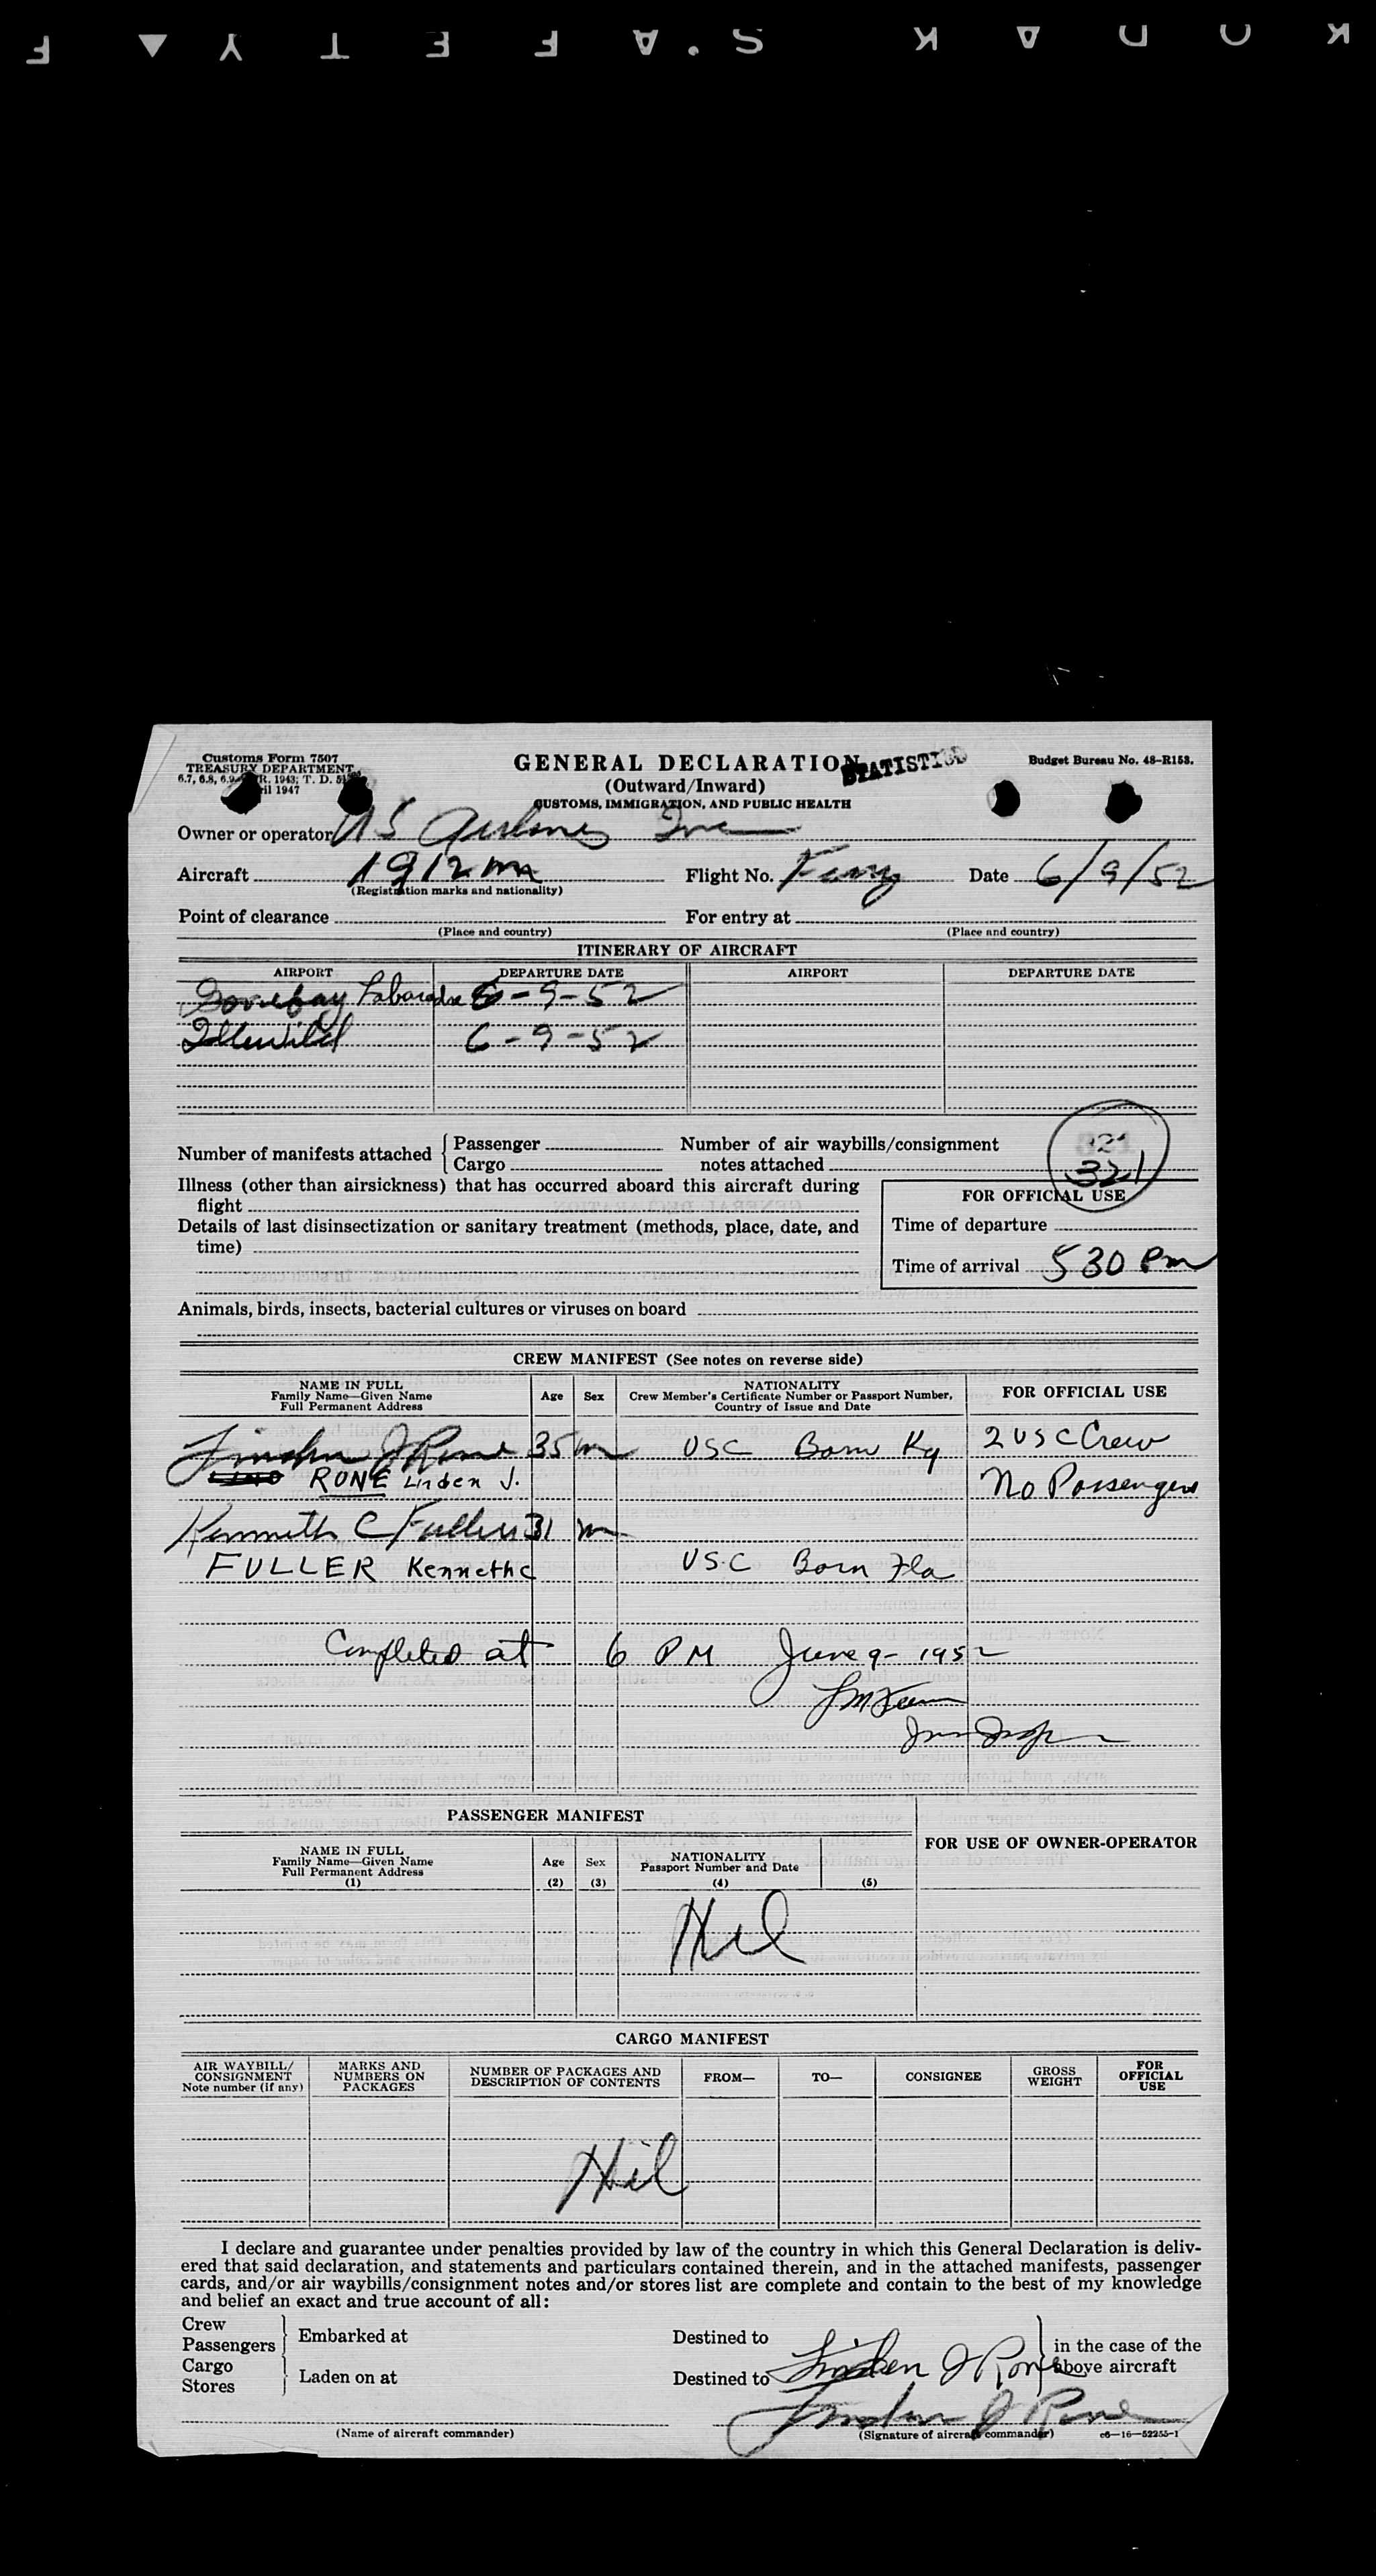 KODAK S.A F E T Y F
Customs Form 7507
TREASURY DEPARTMENT
6.7, 6.8, 6.9 R. 1943; T. D.
il 1947
GENERAL DECLARATION
(Outward/Inward)
CUSTOMS, IMMIGRATION, AND PUBLIC HEALTH
Budget Bureau No. 48-R153.
Owner or operator US Airlines Inc
Aircraft 1912m Flight No. Ferry Date 6/9/52
(Registration marks and nationality)
Point of clearance For entry at
(Place and country) (Place and country)
ITINERARY OF AIRCRAFT
AIRPORT DEPARTURE DATE AIRPORT DEPARTURE DATE
6-9-52
Idlewild 6-9-52
Number of manifests attached { Passenger Number of air waybills/consignment
Cargo notes attached 321
321
Illness (other than airsickness) that has occurred aboard this aircraft during
flight
Details of last disinsectization or sanitary treatment (methods, place, date, and
time)
FOR OFFICIAL USE
Time of departure
Time of arrival 530 Pm
Animals, birds, insects, bacterial cultures or viruses on board
CREW MANIFEST (See notes on reverse side)
NAME IN FULL
Family Name—Given Name
Full Permanent Address
Age Sex
NATIONALITY
Crew Member's Certificate Number or Passport Number,
Country of Issue and Date
FOR OFFICIAL USE
Linden J Rone 35 m USC Born Ky 2 USC Crew
RONE Linden J. No Passengers
Kenneth C Fuller 31 m
FULLER Kenneth C USC Born Fla
Completed at 6 PM June 9-1952
PASSENGER MANIFEST
NAME IN FULL
Family Name—Given Name
Full Permanent Address
(1)
Age
(2)
Sex
(3)
NATIONALITY
Passport Number and Date
(4) (5)
FOR USE OF OWNER-OPERATOR
Nil
CARGO MANIFEST
AIR WAYBILL/
CONSIGNMENT
Note number (if any)
MARKS AND
NUMBERS ON
PACKAGES
NUMBER OF PACKAGES AND
DESCRIPTION OF CONTENTS
FROM—
TO—
CONSIGNEE
GROSS
WEIGHT
FOR
OFFICIAL
USE
Nil
I declare and guarantee under penalties provided by law of the country in which this General Declaration is deliv-
ered that said declaration, and statements and particulars contained therein, and in the attached manifests, passenger
cards, and/or air waybills/consignment notes and/or stores list are complete and contain to the best of my knowledge
and belief an exact and true account of all:
Crew
Passengers } Embarked at Destined to
Cargo
Stores } Laden on at Destined to
Linden J Rone
} in the case of the
above aircraft
Linden J Rone
(Name of aircraft commander) (Signature of aircraft commander) c6—16—52255-1